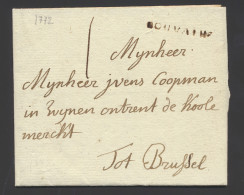 1772
LOUVAIN
Mynheer
Mynheer jvens Coopman
in wynen ontrent de Koole
merckt
Tot Brussel